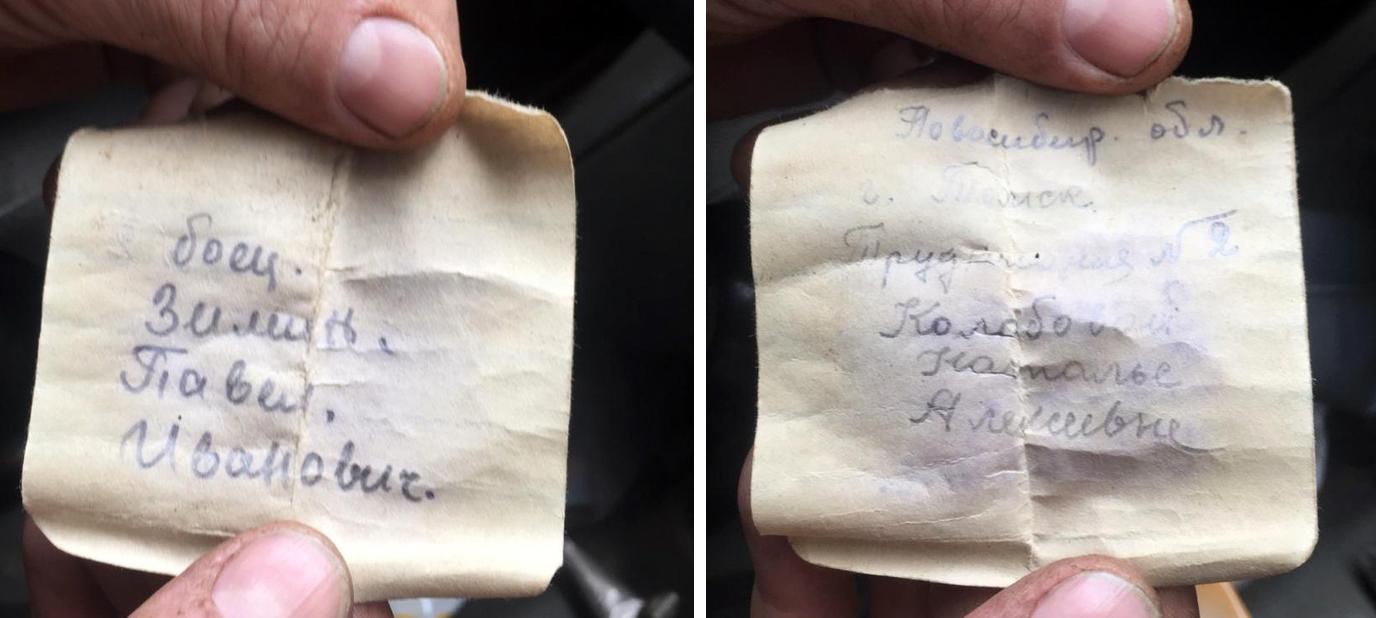 боец.
Зимин.
Павел.
Иванович.
Новосибир. обл.
г. Томск.
№ 2
Колабовой
Наталье
Алексевне